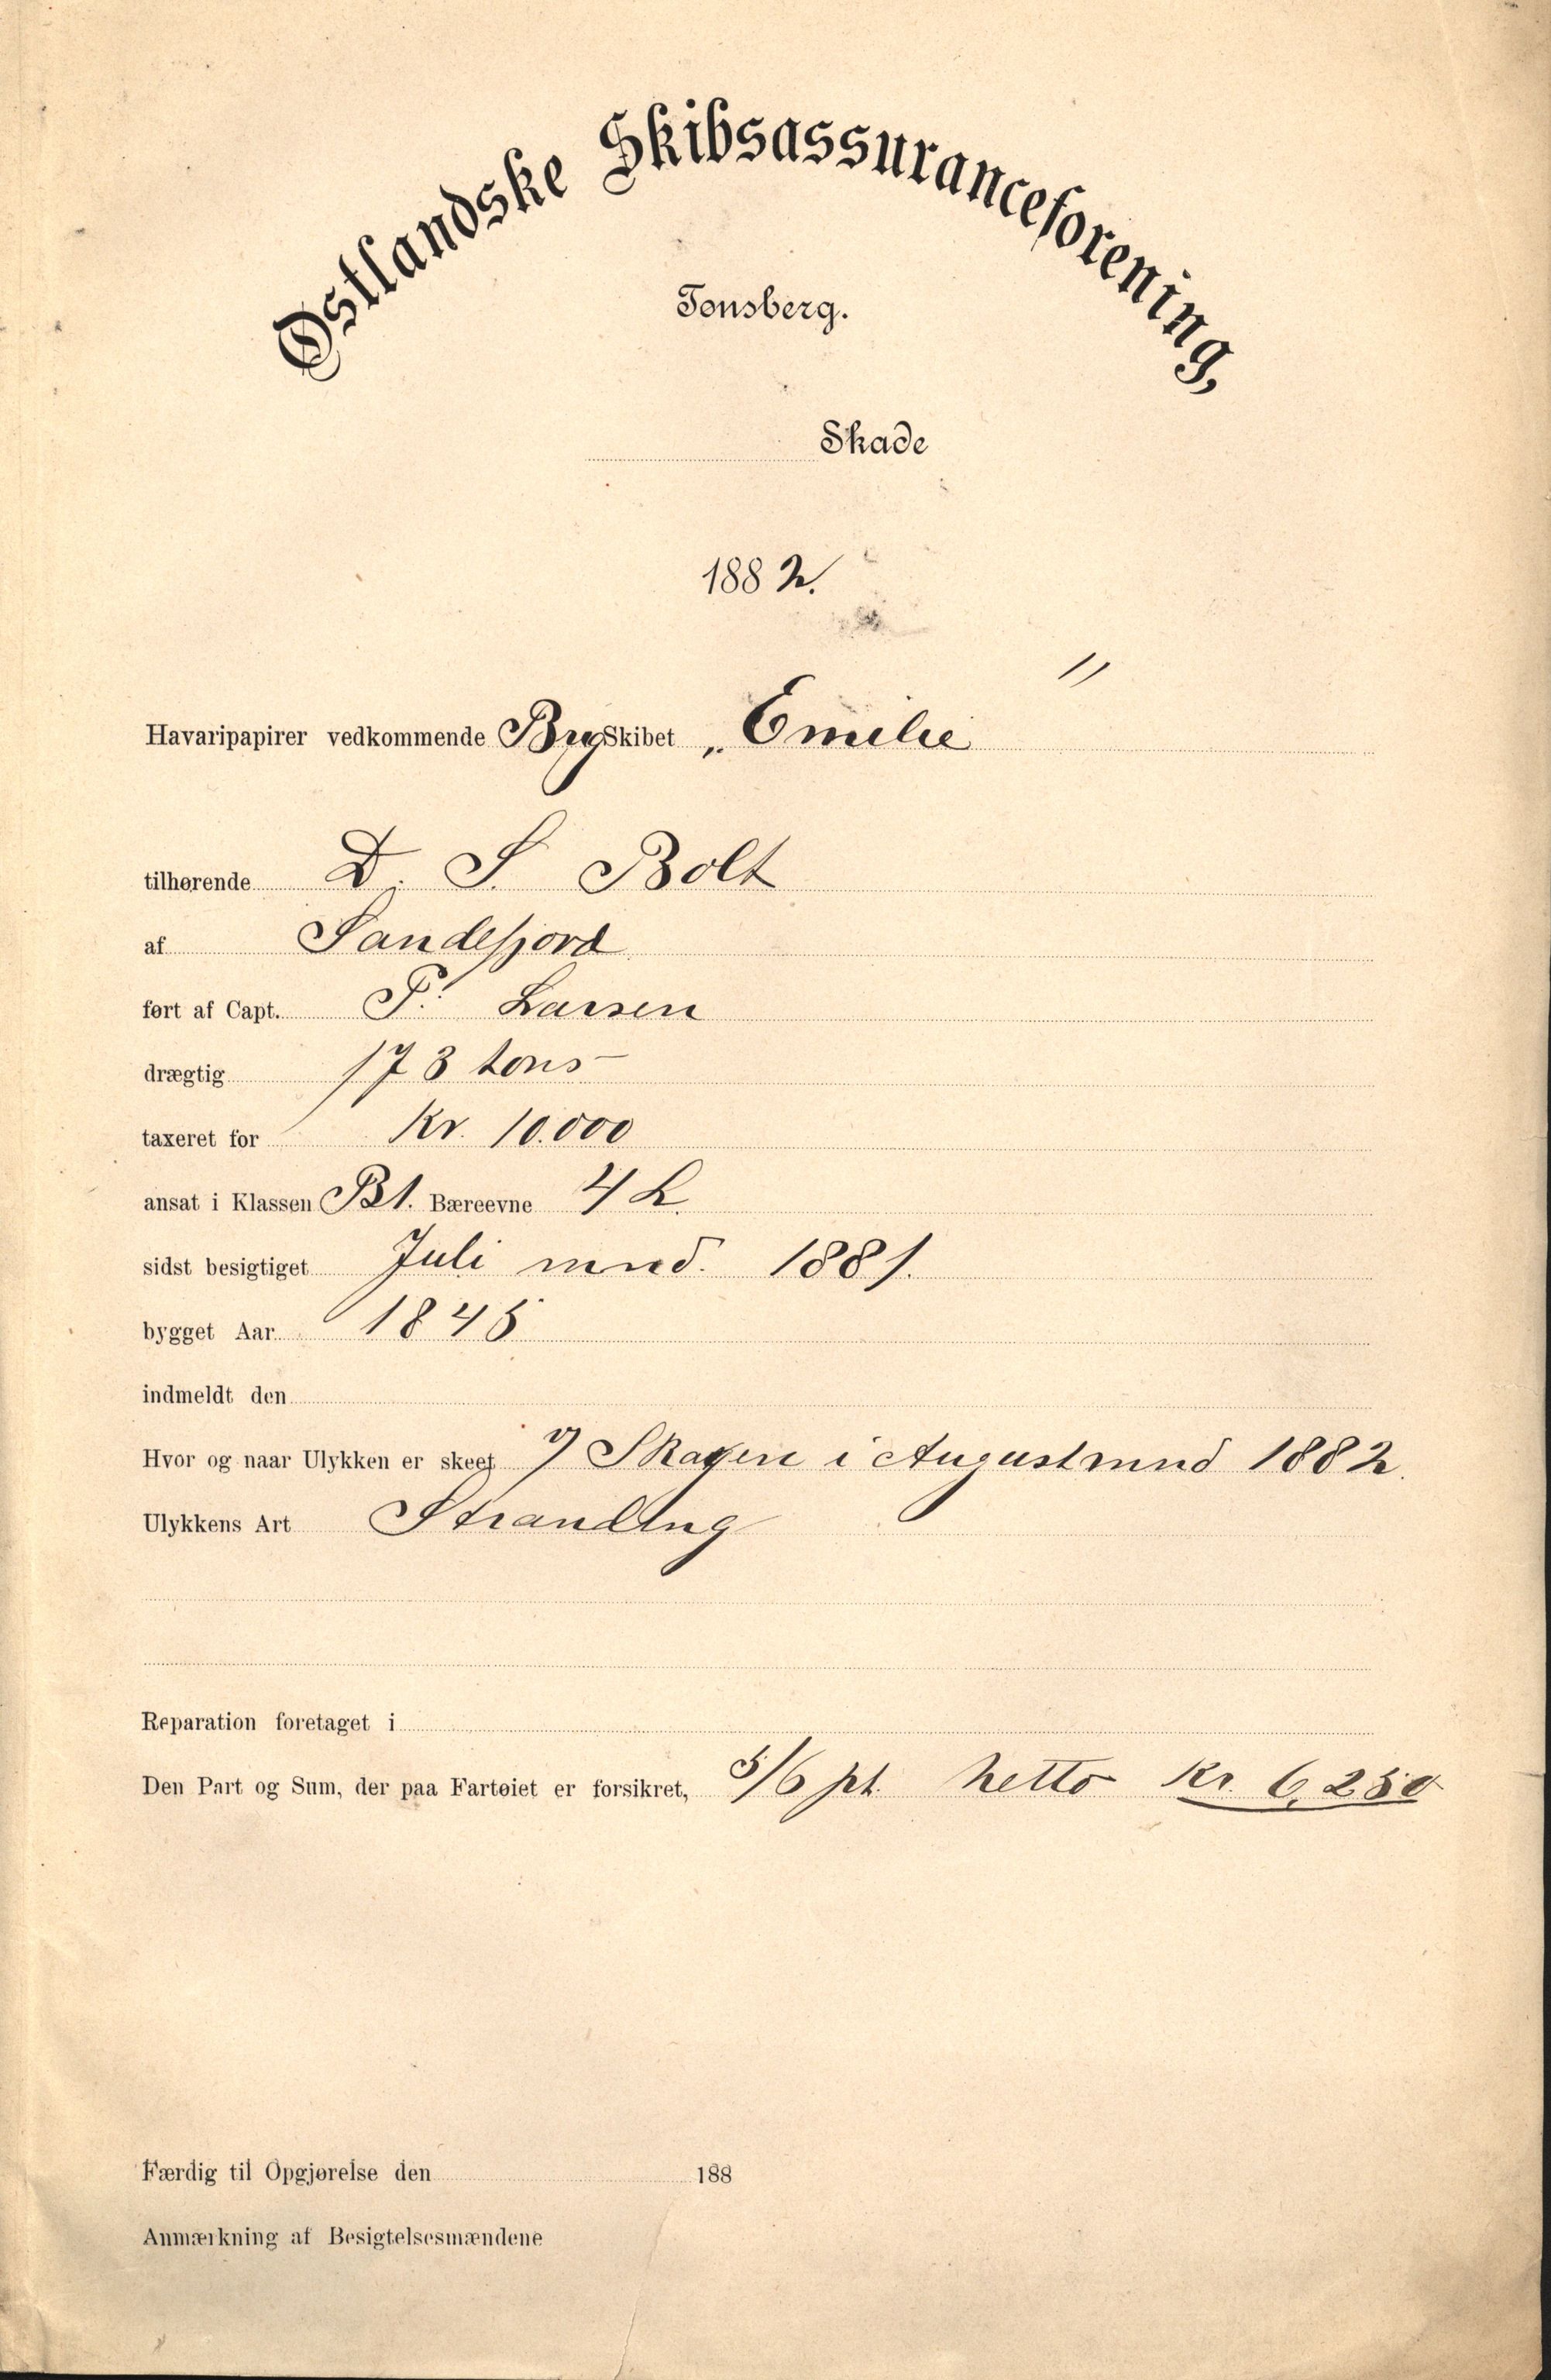 Østlandske Skibsassuranceforening,
Tønsberg.
Skade
1882.
Havaripapirer vedkommende Brg Skibet „Emilie"
tilhørende D. S. Bolt
af Sandefjord
ført af Capt. P. Larsen
drægtig 173 tons
taxeret for Kr. 10.000
ansat i Klassen B1. Bæreevne 4 L.
sidst besigtiget Juli mnd. 1881.
bygget Aar 1845
indmeldt den
Hvor og naar Ulykken er skeet Skagen i August mnd 1882.
Ulykkens Art Stranding
Reparation foretaget i
Den Part og Sum, der paa Fartøiet er forsikret, 5/6 pt. netto Kr. 6,250
Færdig til Opgjørelse den 188
Anmærkning af Besigtelsesmændene